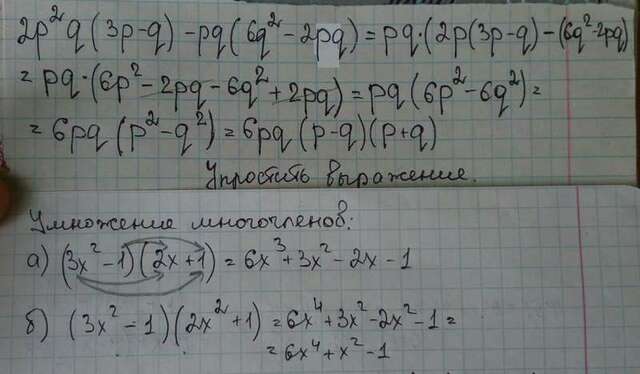 2p²q(3p-q)-pq(6q²-2pq)=pq·(2p(3p-q)-(6q²-2pq)
=pq·(6p²-2pq-6q²+2pq)=pq(6p²-6q²)=
=6pq(p²-q²)=6pq(p-q)(p+q)
Упростить выражение.
Умножение многочленов:
а) (3x²-1)(2x+1)=6x³+3x²-2x-1
б) (3x²-1)(2x²+1)=6x⁴+3x²-2x²-1=
=6x⁴+x²-1